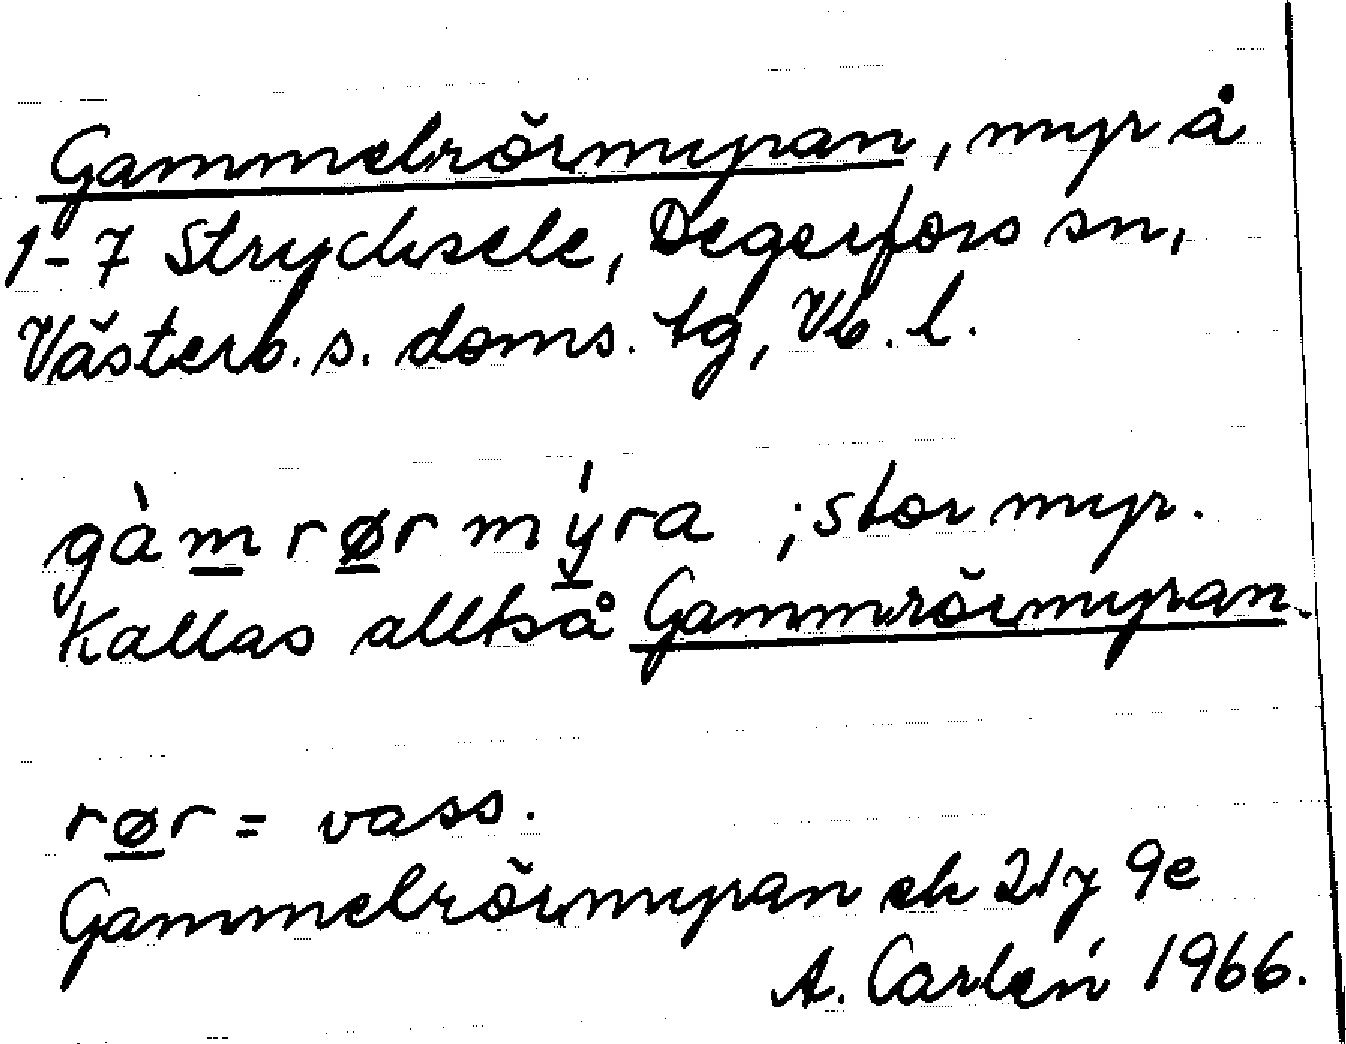 Gammelrörmyran, myr å
1-7 Strycksele, Degerfors sn,
Västerb. s. doms. tg, Vb. l.
gàm rør mýra ; stor myr.
Kallas alltså Gammrörmyran.
rør = vass.
Gammelrörmyran ek 21y 9e
A. Carlén 1966.